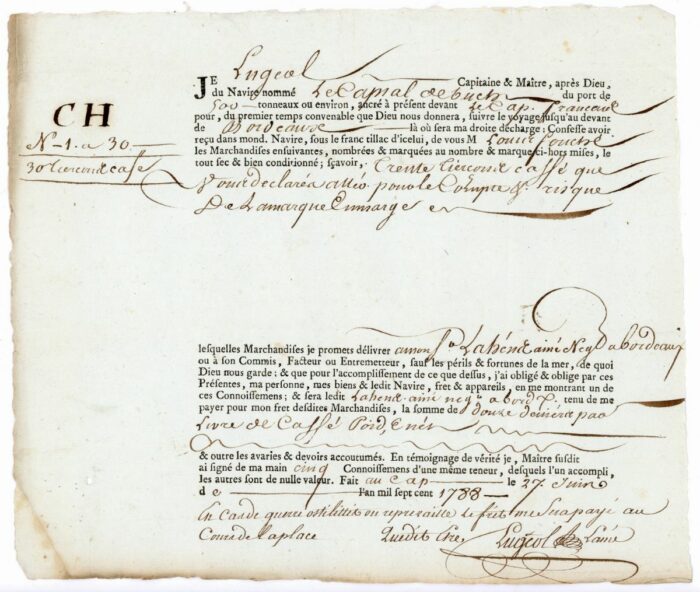 JE Lugeol Capitaine & Maître, après Dieu,
du Navire nommé Le Captal de buch du port de
500 tonneaux ou environ, ancré à présent devant Le Cap français
pour, du premier temps convenable que Dieu nous donnera, suivre le voyage jusqu'au devant
de Bordeaux là où sera ma droite décharge: Confesse avoir
reçu dans mond. Navire, sous le franc tillac d'icelui, de vous M Louis
Marchandises ensuivantes, nombrées & marquées au nombre & marque ci-hors mises, le
tout sec & bien conditionné; sçavoir, trente tierçons caffé que
vous declarés pour le Compte & risque
De Lamarque Enmarge
CH
N 1 a 30
30 tierçons caffé
lesquelles Marchandises je promets délivrer amons Lahens ainé Neg a bordeaux
ou à son Commis, Facteur ou Entremetteur, sauf les périls & fortunes de la mer, de quoi
Dieu nous garde; & que pour l'accomplissement de ce que dessus, j'ai obligé & oblige par ces
Présentes, ma personne, mes biens & ledit Navire, fret & appareils, en me montrant un de
ces Connoissemens; & sera ledit Lahens ainé neg a bord tenu de me
payer pour mon fret desdites Marchandises, la somme de Douze deniers par
Livre de Caffé Poid, Enet
& outre les avaries & devoirs accoutumés. En témoignage de vérité je, Maître susdit
ai signé de ma main cinq Connoissemens d'une même teneur, desquels l'un accompli,
les autres sont de nulle valeur. Fait au Cap le 27 Juin
d l'an mil sept cent 1788
En Cas de guerre ostilittés ou represaille le fret me sera payé au
Cours de la place Lugeol Lainé